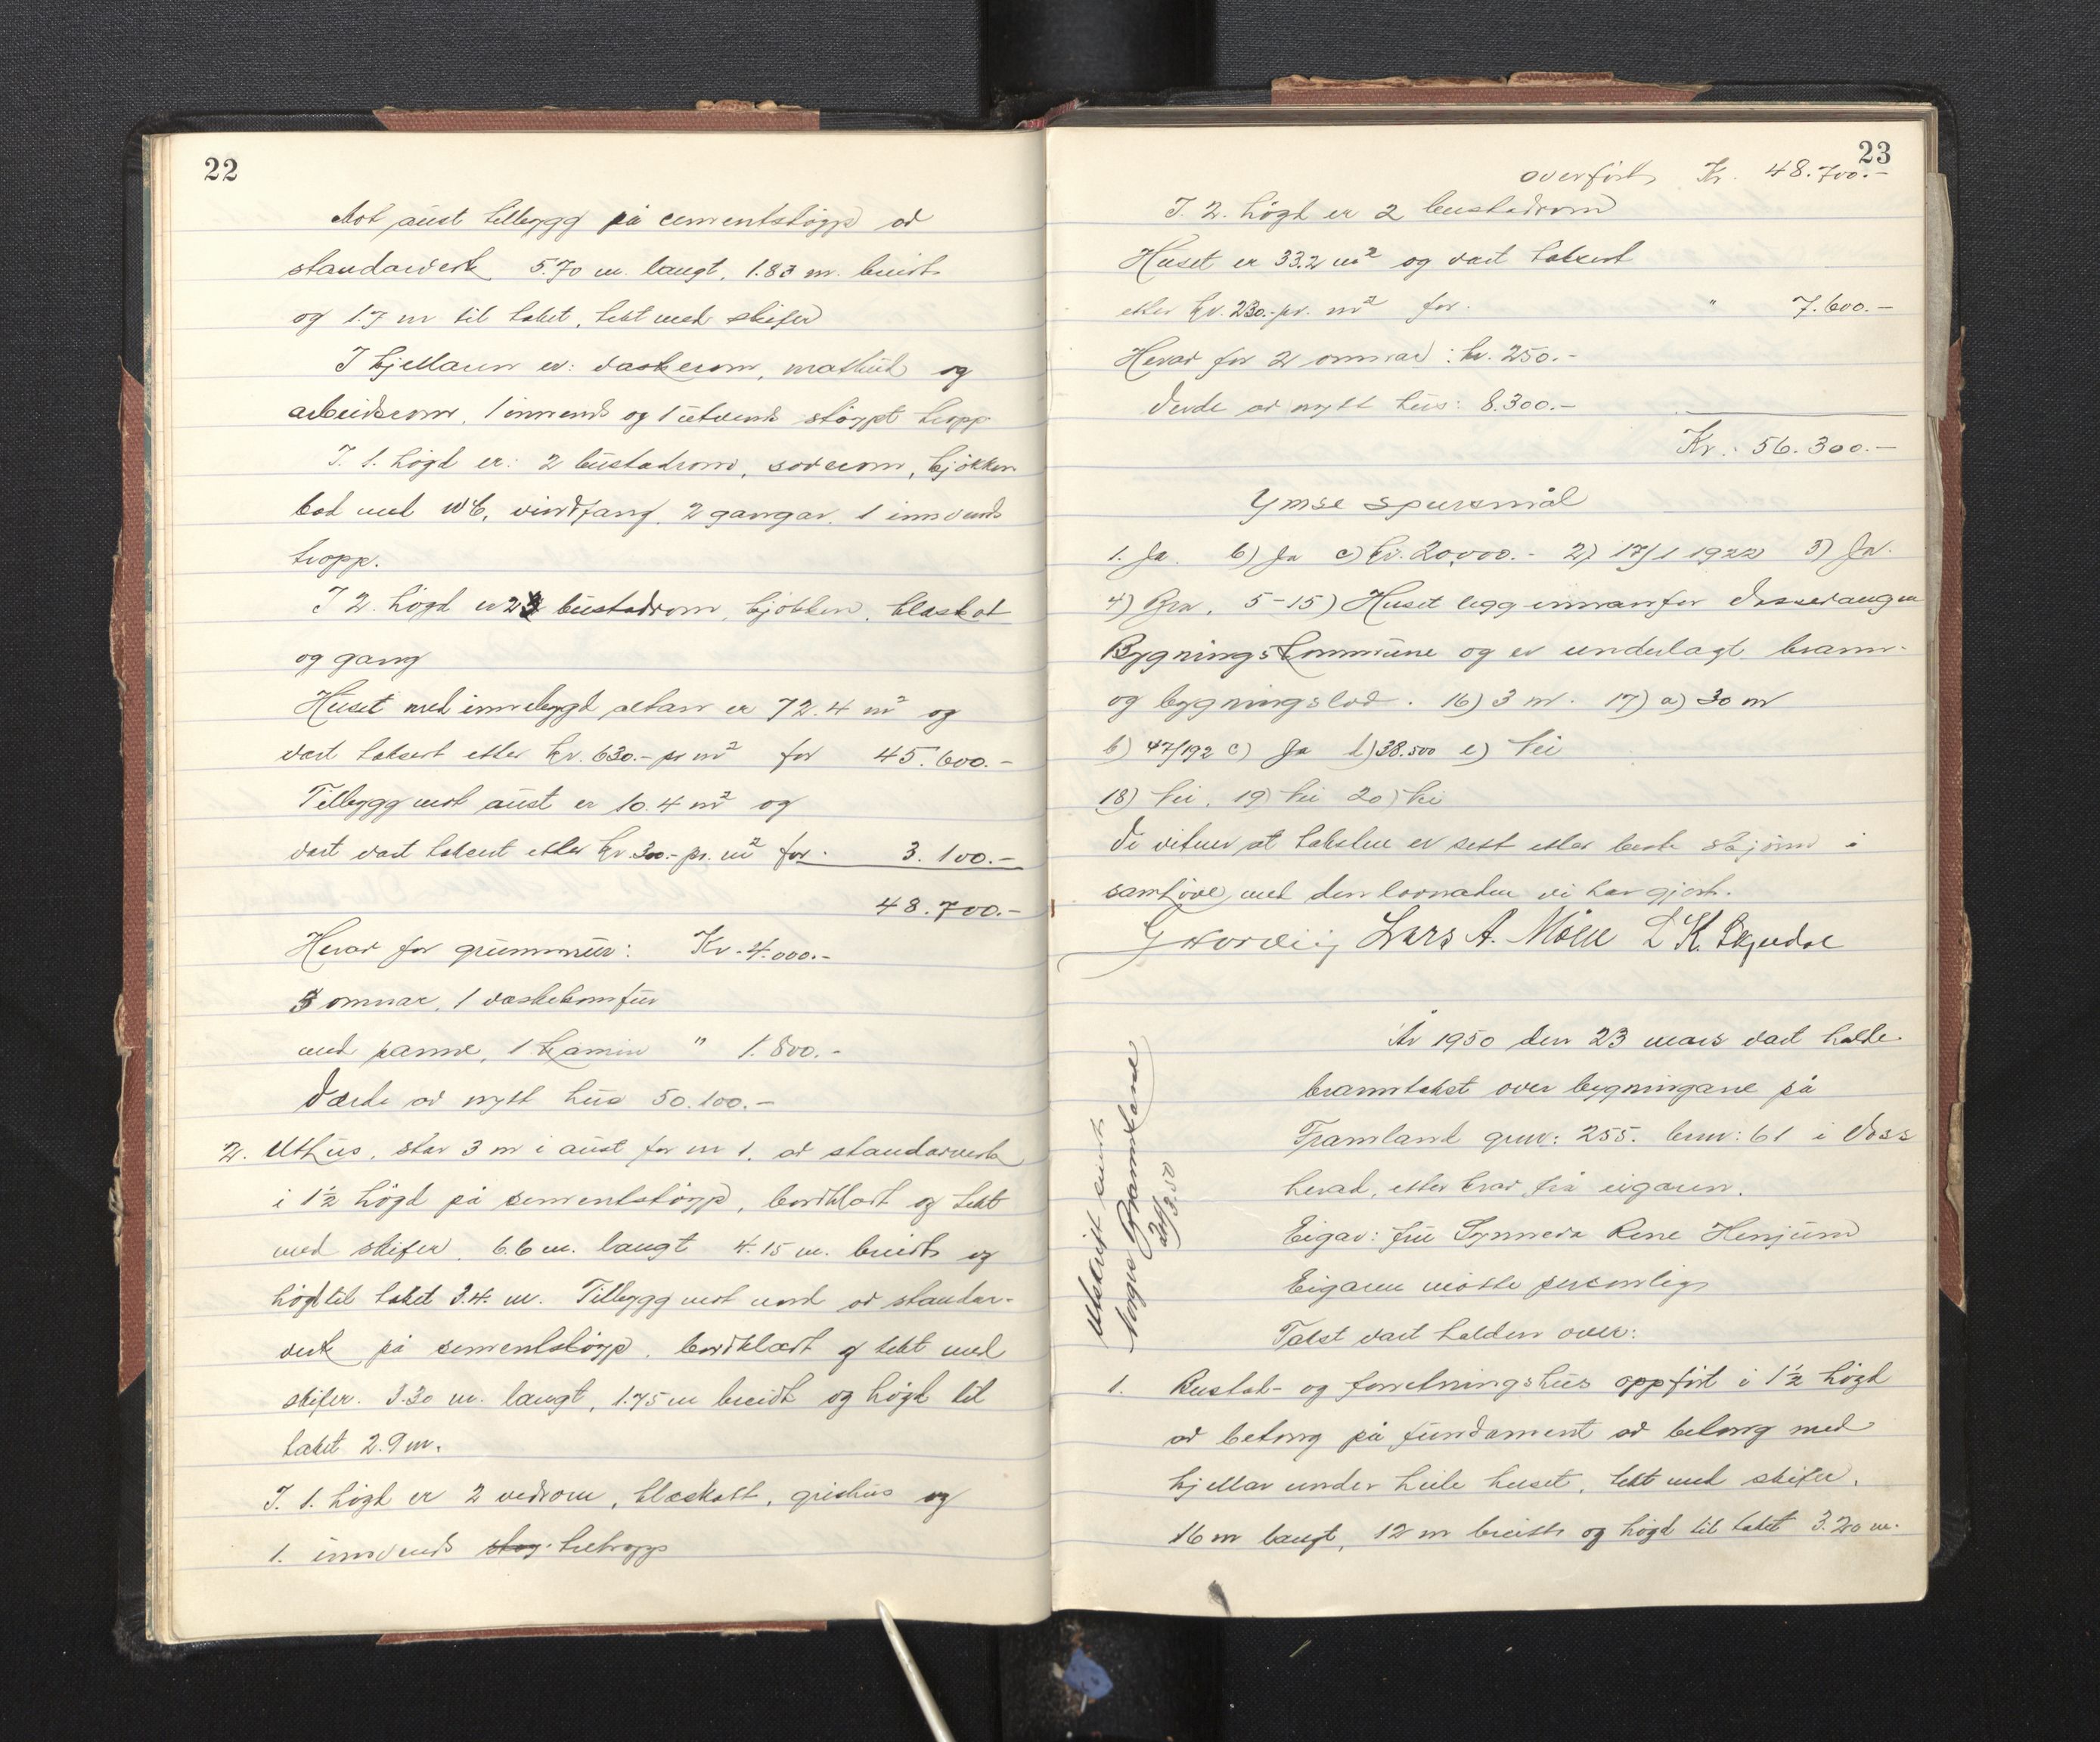 22
Mot aust tilbygg på cementstøypp av
standarverk 5.70 m. langt, 1.83 m. breidt
og 1.7 m til taket, tekt med skifer
I kjellaren er: vaskerom, matbud og
arbeidsrom, 1 innvends og 1 utvends støypt tropp
I. 1. högd er: 2 bustadrom, soverom, kjökken
bad med WC, vindfang, 2 gangar, 1 innvends
tropp.
I 2. högd er 2 bustadrom, kjökken, kleskot
og gang
Huset med innebygd altan er 72.4 m² og
vart taksert etter kr. 630.- pr m² for 45.600.-
Tilbygg mot aust er 10.4 m² og
vart vart taksert etter kr. 300.- pr. m² for. 3.100.-
48.700.-
Herav for grunnmur: Kr. 4.000.-
5 omnar, 1 vaskekomfur
med panne, 1 kamin " 1.800.-
Verde av nytt hus 50.100.-
2. Uthus, står 3 m i aust for nr 1. av standarverk
i 1½ högd på sementstøypp, bordklædt og tekt
med skifer. 6.6 m. langt 4.15 m. breidt og
högd til taket 3.4. m. Tilbygg mot nord av standar-
verk på sementstøypp, bordklædt og tekt med
skifer. 3.30 m. langt, 1.75 m breidt og högd til
taket 2.9 m.
I. 1. högd er 2 vedrom, kleskott, grishus og
1. innvends støy. tretropp
23
overfört, Kr. 48.700.-
I. 2. högd er 2 bustadrom
Huset er 33.2 m² og vart taksert
etter kr. 230.- pr. m² for. " 7.600.-
Herav for 2 omnar: kr. 250.-
Verde av nytt hus: 8.300.-
Kr. 56.300.-
Ymse spursmål
1. Ja. b) Ja c) kr. 20.000.- 2) 17/1 1922 3) Ja.
4) Bra. 5-15) Huset ligg innanfor Vossevangen
Bygningskommune og er underlagt brann-
og bygningslov. 16) 3 m. 17) a) 30 m
b) 47/192 c) Ja d) 38.500 e) Nei
18) Nei. 19) Nei 20) Nei
Vi vitner at taksten er sett etter beste skjönn i
samhøve med den lovnaden vi har gjort.
Lars A. Möen L K. Skjeldal
År 1950 den 23 mars vart halde
branntakst over bygningane på
Framland gnr: 255. bnr: 61 i Voss
herad, etter krav frå eigaren.
Eigar: fru Synneva Rene Henjum
Eigaren møtte personlig
Takst vart halden over:
1. Bustad- og forretningshus oppfört i 1½ högd
av betong på fundament av betong med
kjellar under heile huset, tekt med skifer.
16 m langt, 12 m breidt og högd til taket 3.20 m.
Utskrift sendt
Norges Brannkasse